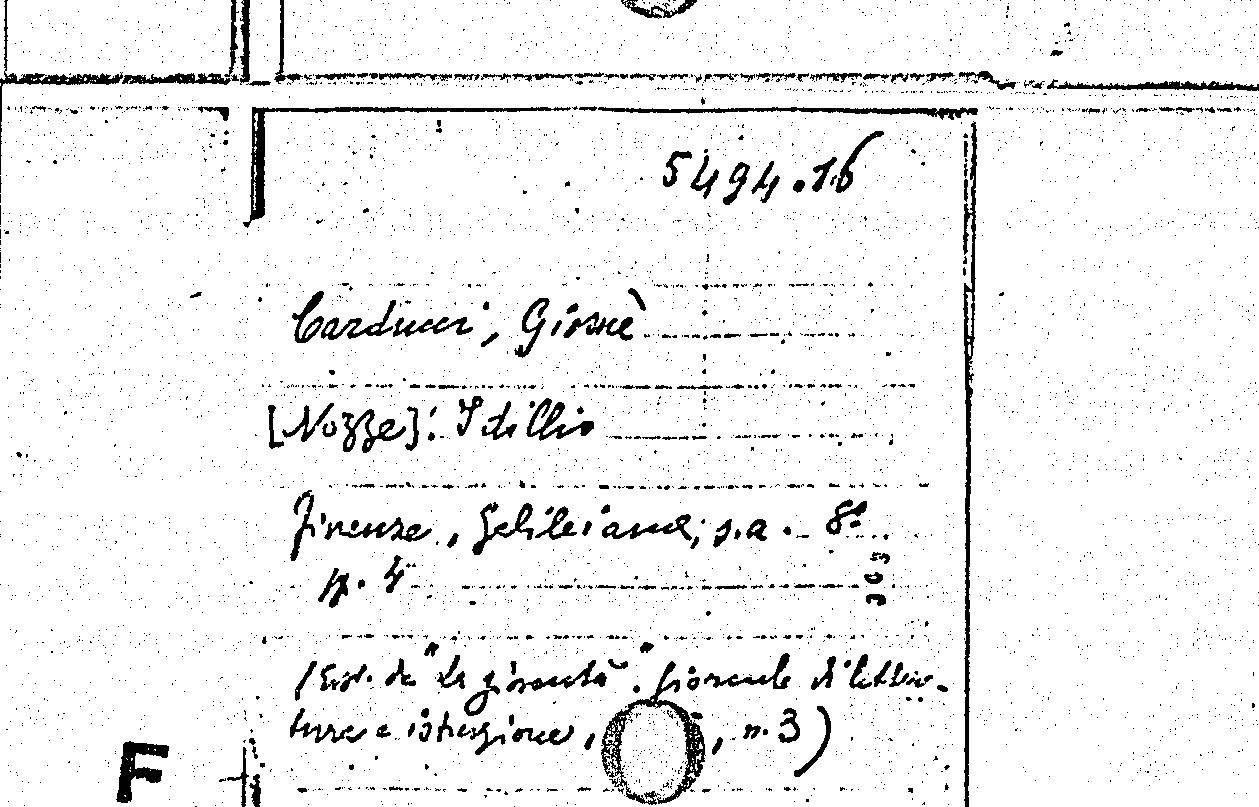 5494.16
Carducci, Giosuè
[Nozze]: Idillio
Firenze, Galileiana, s.a. 8º
pp. 4
(Estr. da "La gioventù". Giornale di lettera-
tura e istruzione, , n. 3)
F